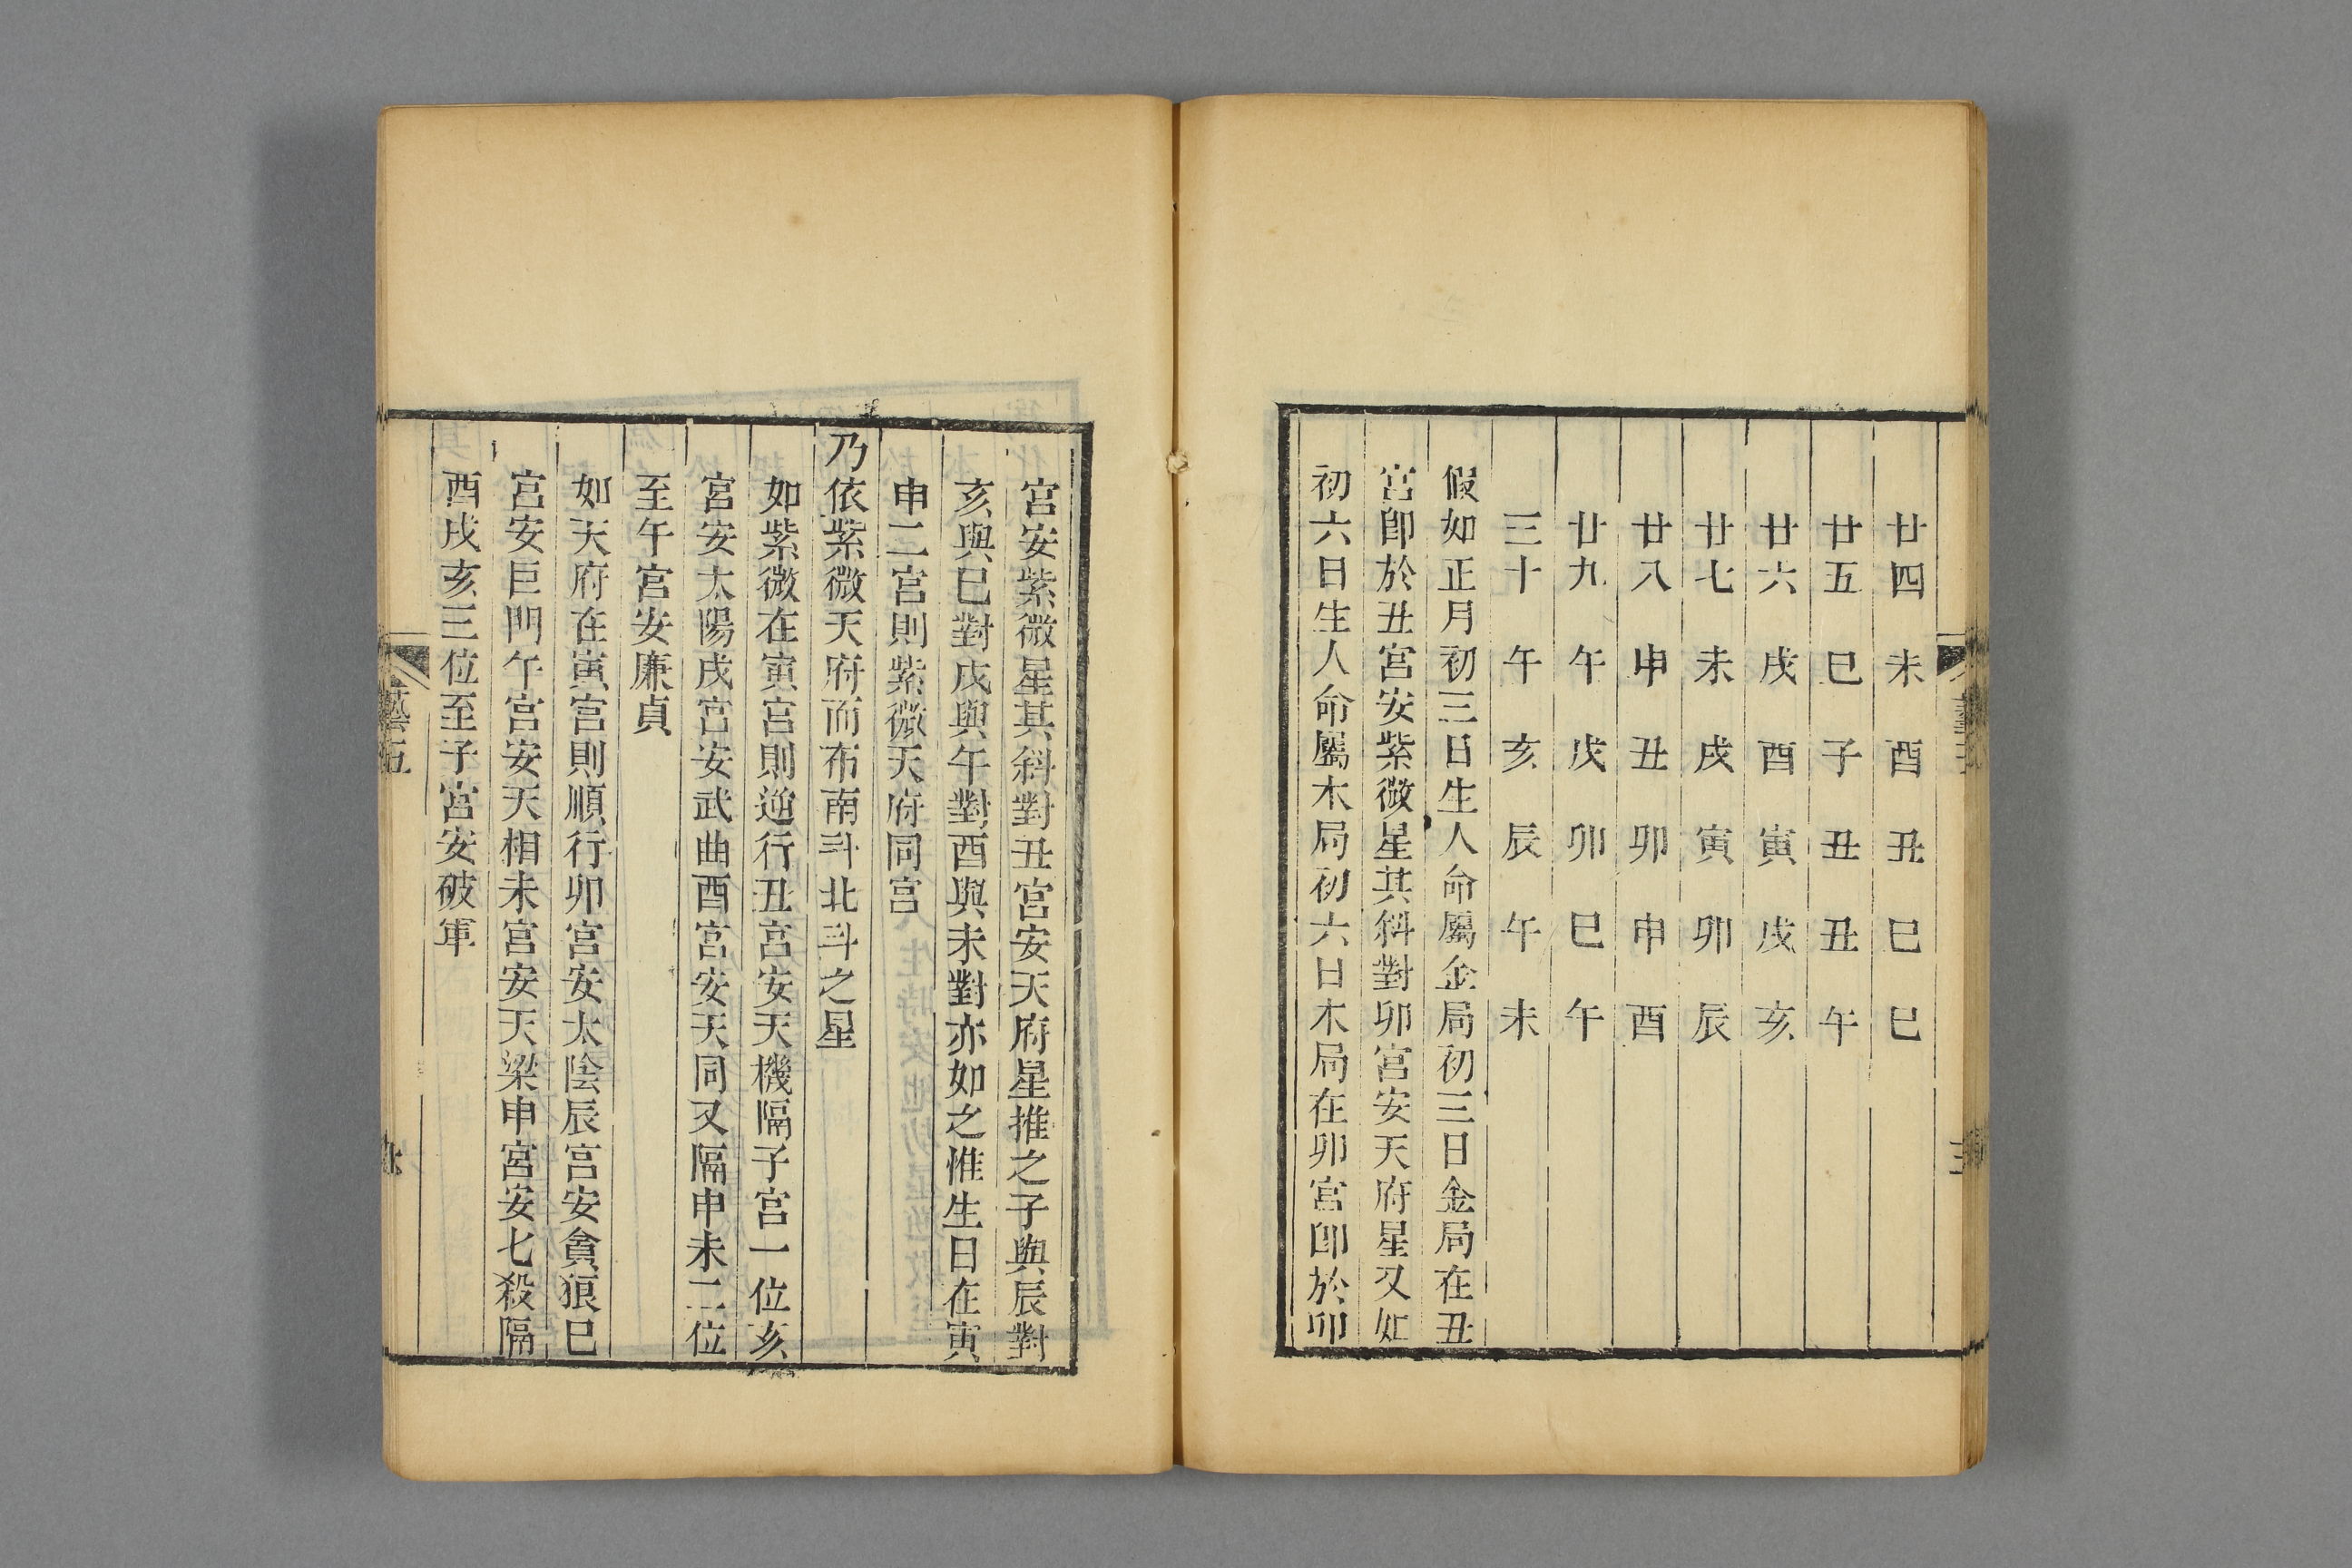 廿四未酉丑巳巳
廿五巳子丑丑午
廿六戌酉寅戌亥
廿七未戌寅卯辰
廿八申丑卯申酉
廿九午戌卯巳午
三十午亥辰午未
假如正月初三日生人命屬金局初三日金局在丑
宮卽於丑宮安紫微星其斜對卯宮安天府星又如
初六日生人命屬木局初六日木局在卯宮卽於卯
宮安紫微星其斜對丑宮安天府星推之子與辰對
亥與巳對戌與午對酉與未對亦如之惟生日在寅
申二宮則紫微天府同宮
乃依紫微天府而布南斗北斗之星
如紫微在寅宮則逆行丑宮安天機隔子宮一位亥
宮安太陽戌宮安武曲酉宮安天同又隔申未二位
至午宮安廉貞
如天府在寅宮則順行卯宮安太陰辰宮安貪狼巳
宮安巨門午宮安天相未宮安天梁申宮安七殺隔
酉戌亥三位至子宮安破軍
藝五